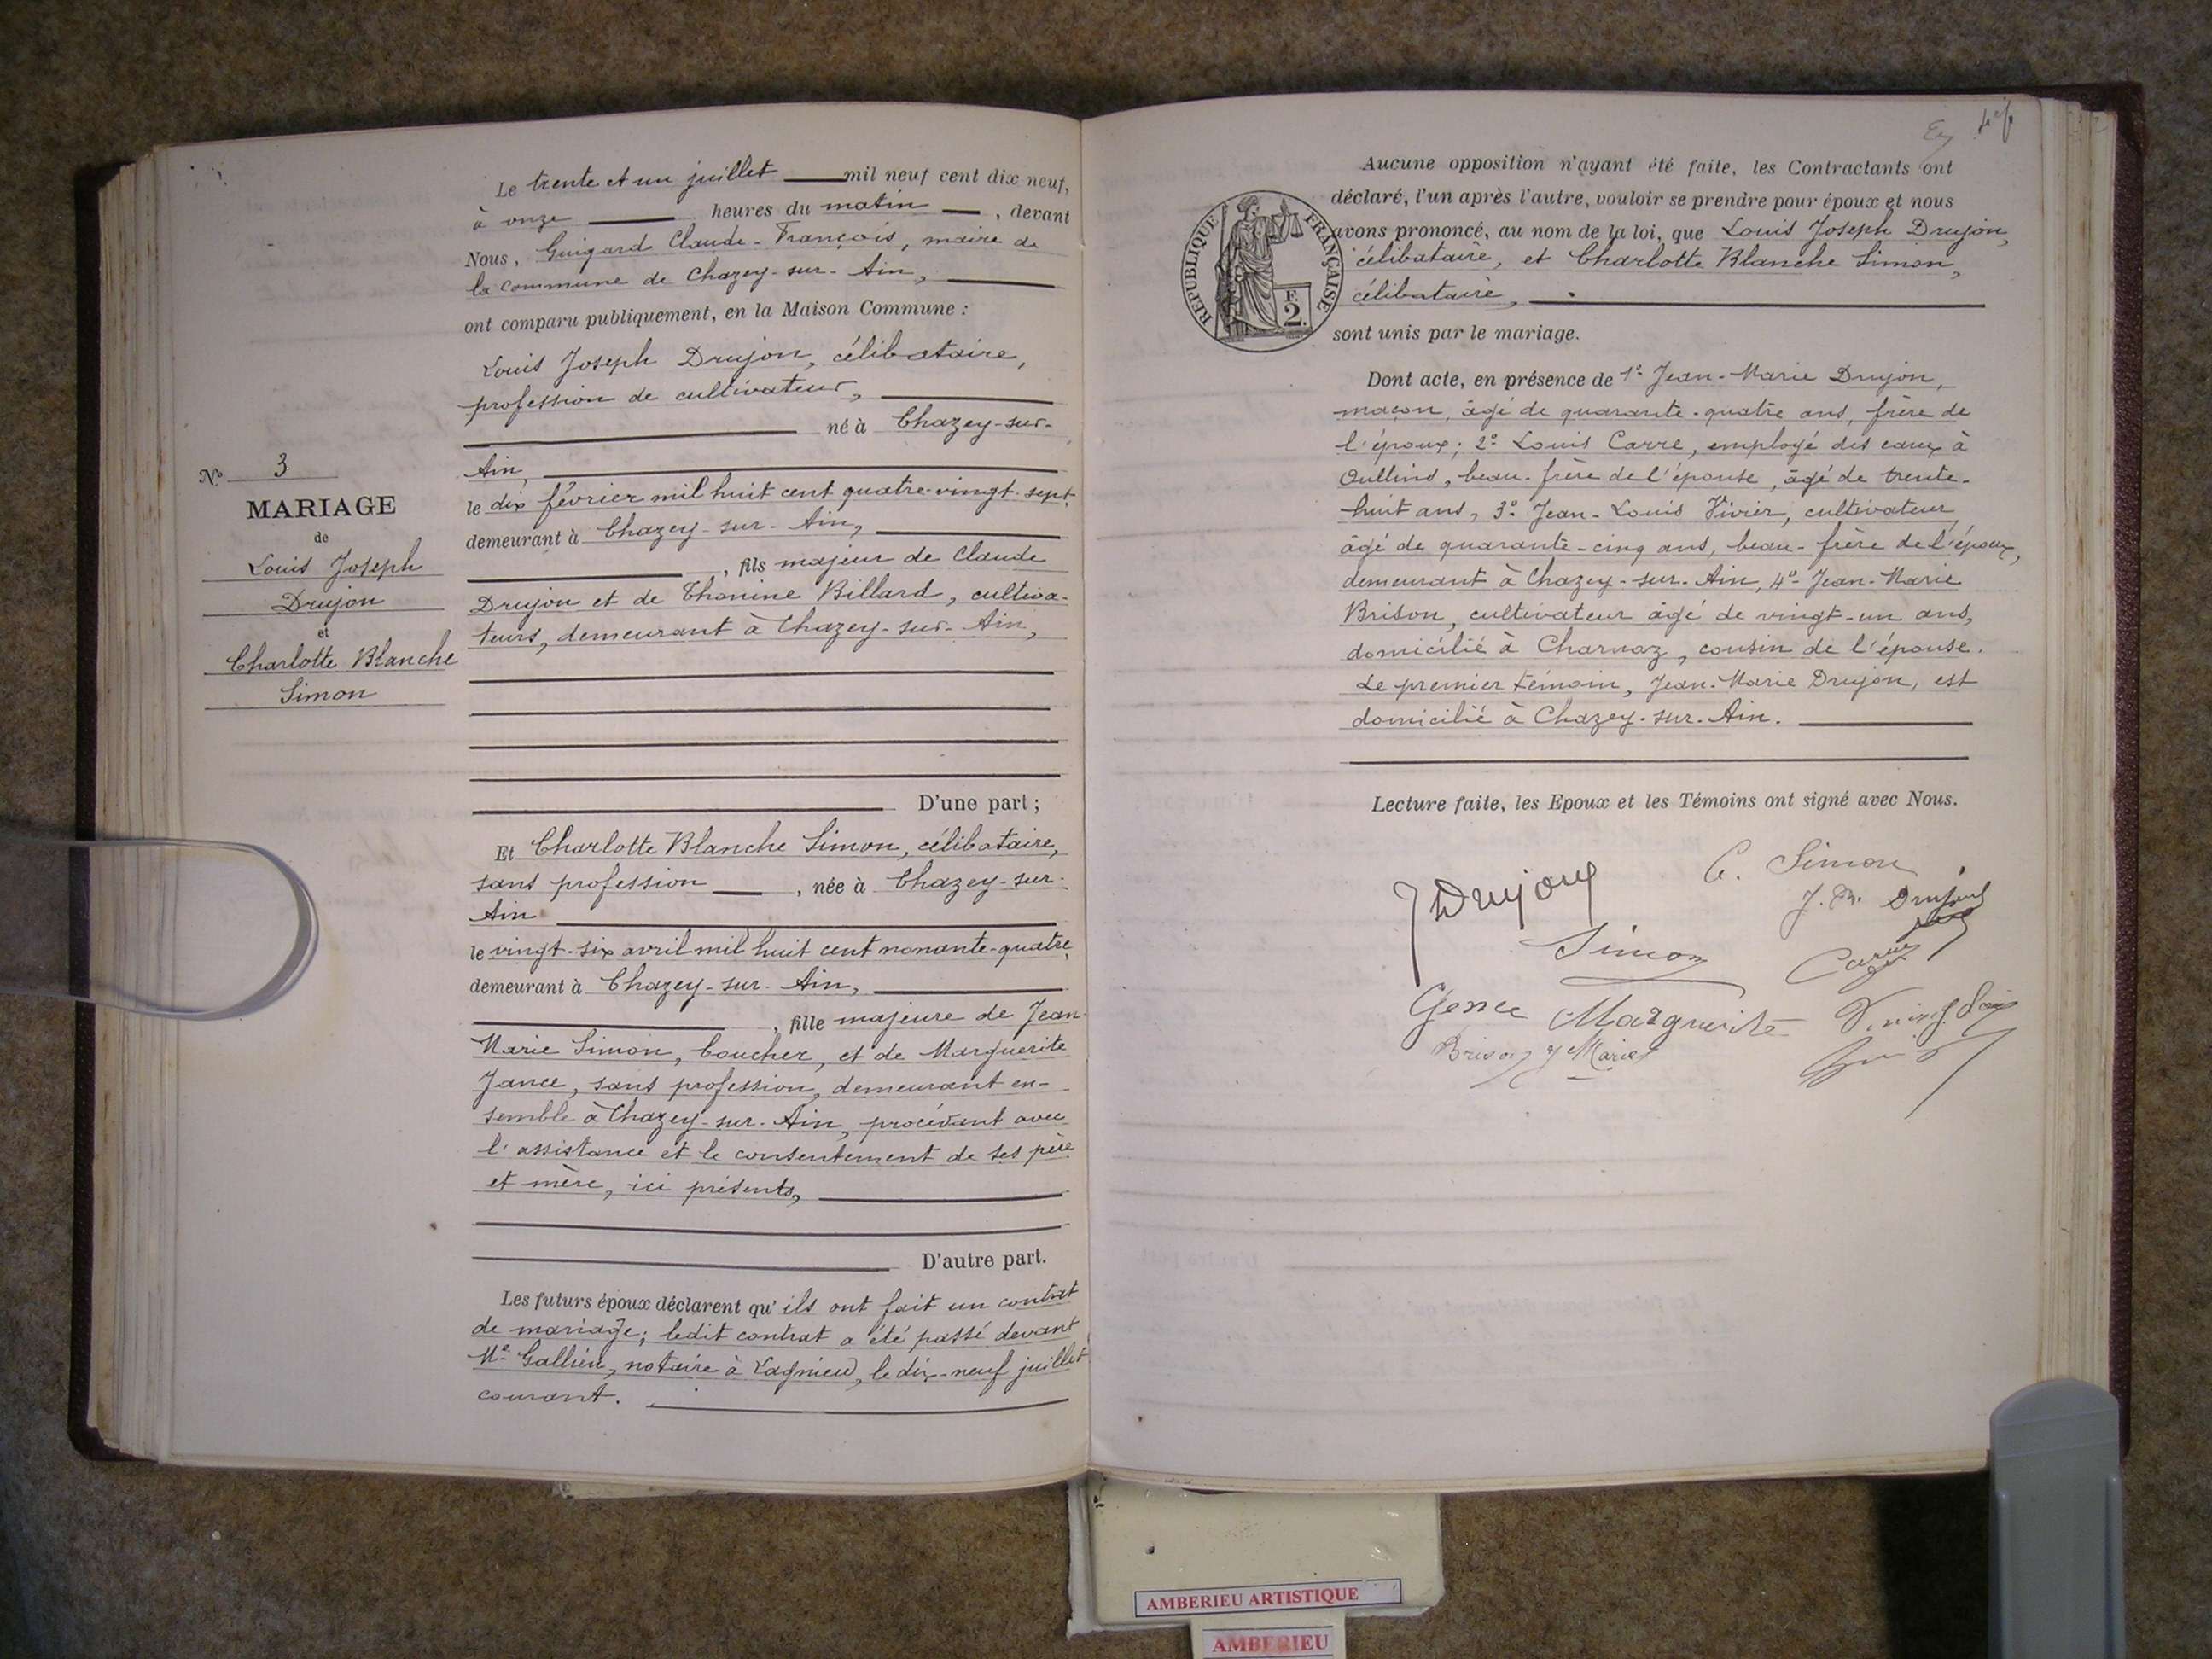 N° 3
MARIAGE
de
Louis Joseph
Drujon
et
Charlotte Blanche
Simon
Le trente et un juillet mil neuf cent dix neuf,
à onze heures du matin, devant
Nous, Guigard Claude-François, maire de
la commune de Chazey-sur-Ain,
ont comparu publiquement, en la Maison Commune :
Louis Joseph Drujon, célibataire,
profession de cultivateur,
né à Chazey-sur-
Ain,
le dix février mil huit cent quatre-vingt-sept,
demeurant à Chazey-sur-Ain,
, fils majeur de Claude
Drujon et de Thonine Billard, cultiva-
teurs, demeurant à Chazey-sur-Ain,
D'une part ;
Et Charlotte Blanche Simon, célibataire,
sans profession, née à Chazey-sur-
Ain
le vingt-six avril mil huit cent nonante-quatre,
demeurant à Chazey-sur-Ain,
, fille majeure de Jean-
Marie Simon, boucher, et de Marguerite
Jance, sans profession, demeurant en-
semble à Chazey-sur-Ain, procédant avec
l'assistance et le consentement de ses père
et mère, ici présents,
D'autre part.
Les futurs époux déclarent qu'ils ont fait un contrat
de mariage; ledit contrat a été passé devant
Me Gallien, notaire à Lagnieu, le dix-neuf juillet
courant.
Aucune opposition n'ayant été faite, les Contractants ont
déclaré, l'un après l'autre, vouloir se prendre pour époux et nous
avons prononcé, au nom de la loi, que Louis Joseph Drujon,
célibataire, et Charlotte Blanche Simon,
célibataire,
REPUBLIQUE FRANÇAISE
F.
2.
sont unis par le mariage.
Dont acte, en présence de 1° Jean-Marie Drujon,
maçon, âgé de quarante-quatre ans, frère de
l'époux; 2° Louis Carre, employé des eaux à
Oullins, beau-frère de l'épouse, âgé de trente-
huit ans, 3° Jean-Louis Vivier, cultivateur
âgé de quarante-cinq ans, beau-frère de l'époux,
demeurant à Chazey-sur-Ain, 4° Jean-Marie
Brison, cultivateur âgé de vingt-un ans,
domicilié à Charnoz, cousin de l'épouse.
Le premier témoin, Jean-Marie Drujon, est
domicilié à Chazey-sur-Ain.
Lecture faite, les Epoux et les Témoins ont signé avec Nous.
J Drujon
C. Simon
J. M. Drujon
Simon
Carre
Gence Marguerite
Brison J Marie
AMBERIEU ARTISTIQUE
AMBERIEU